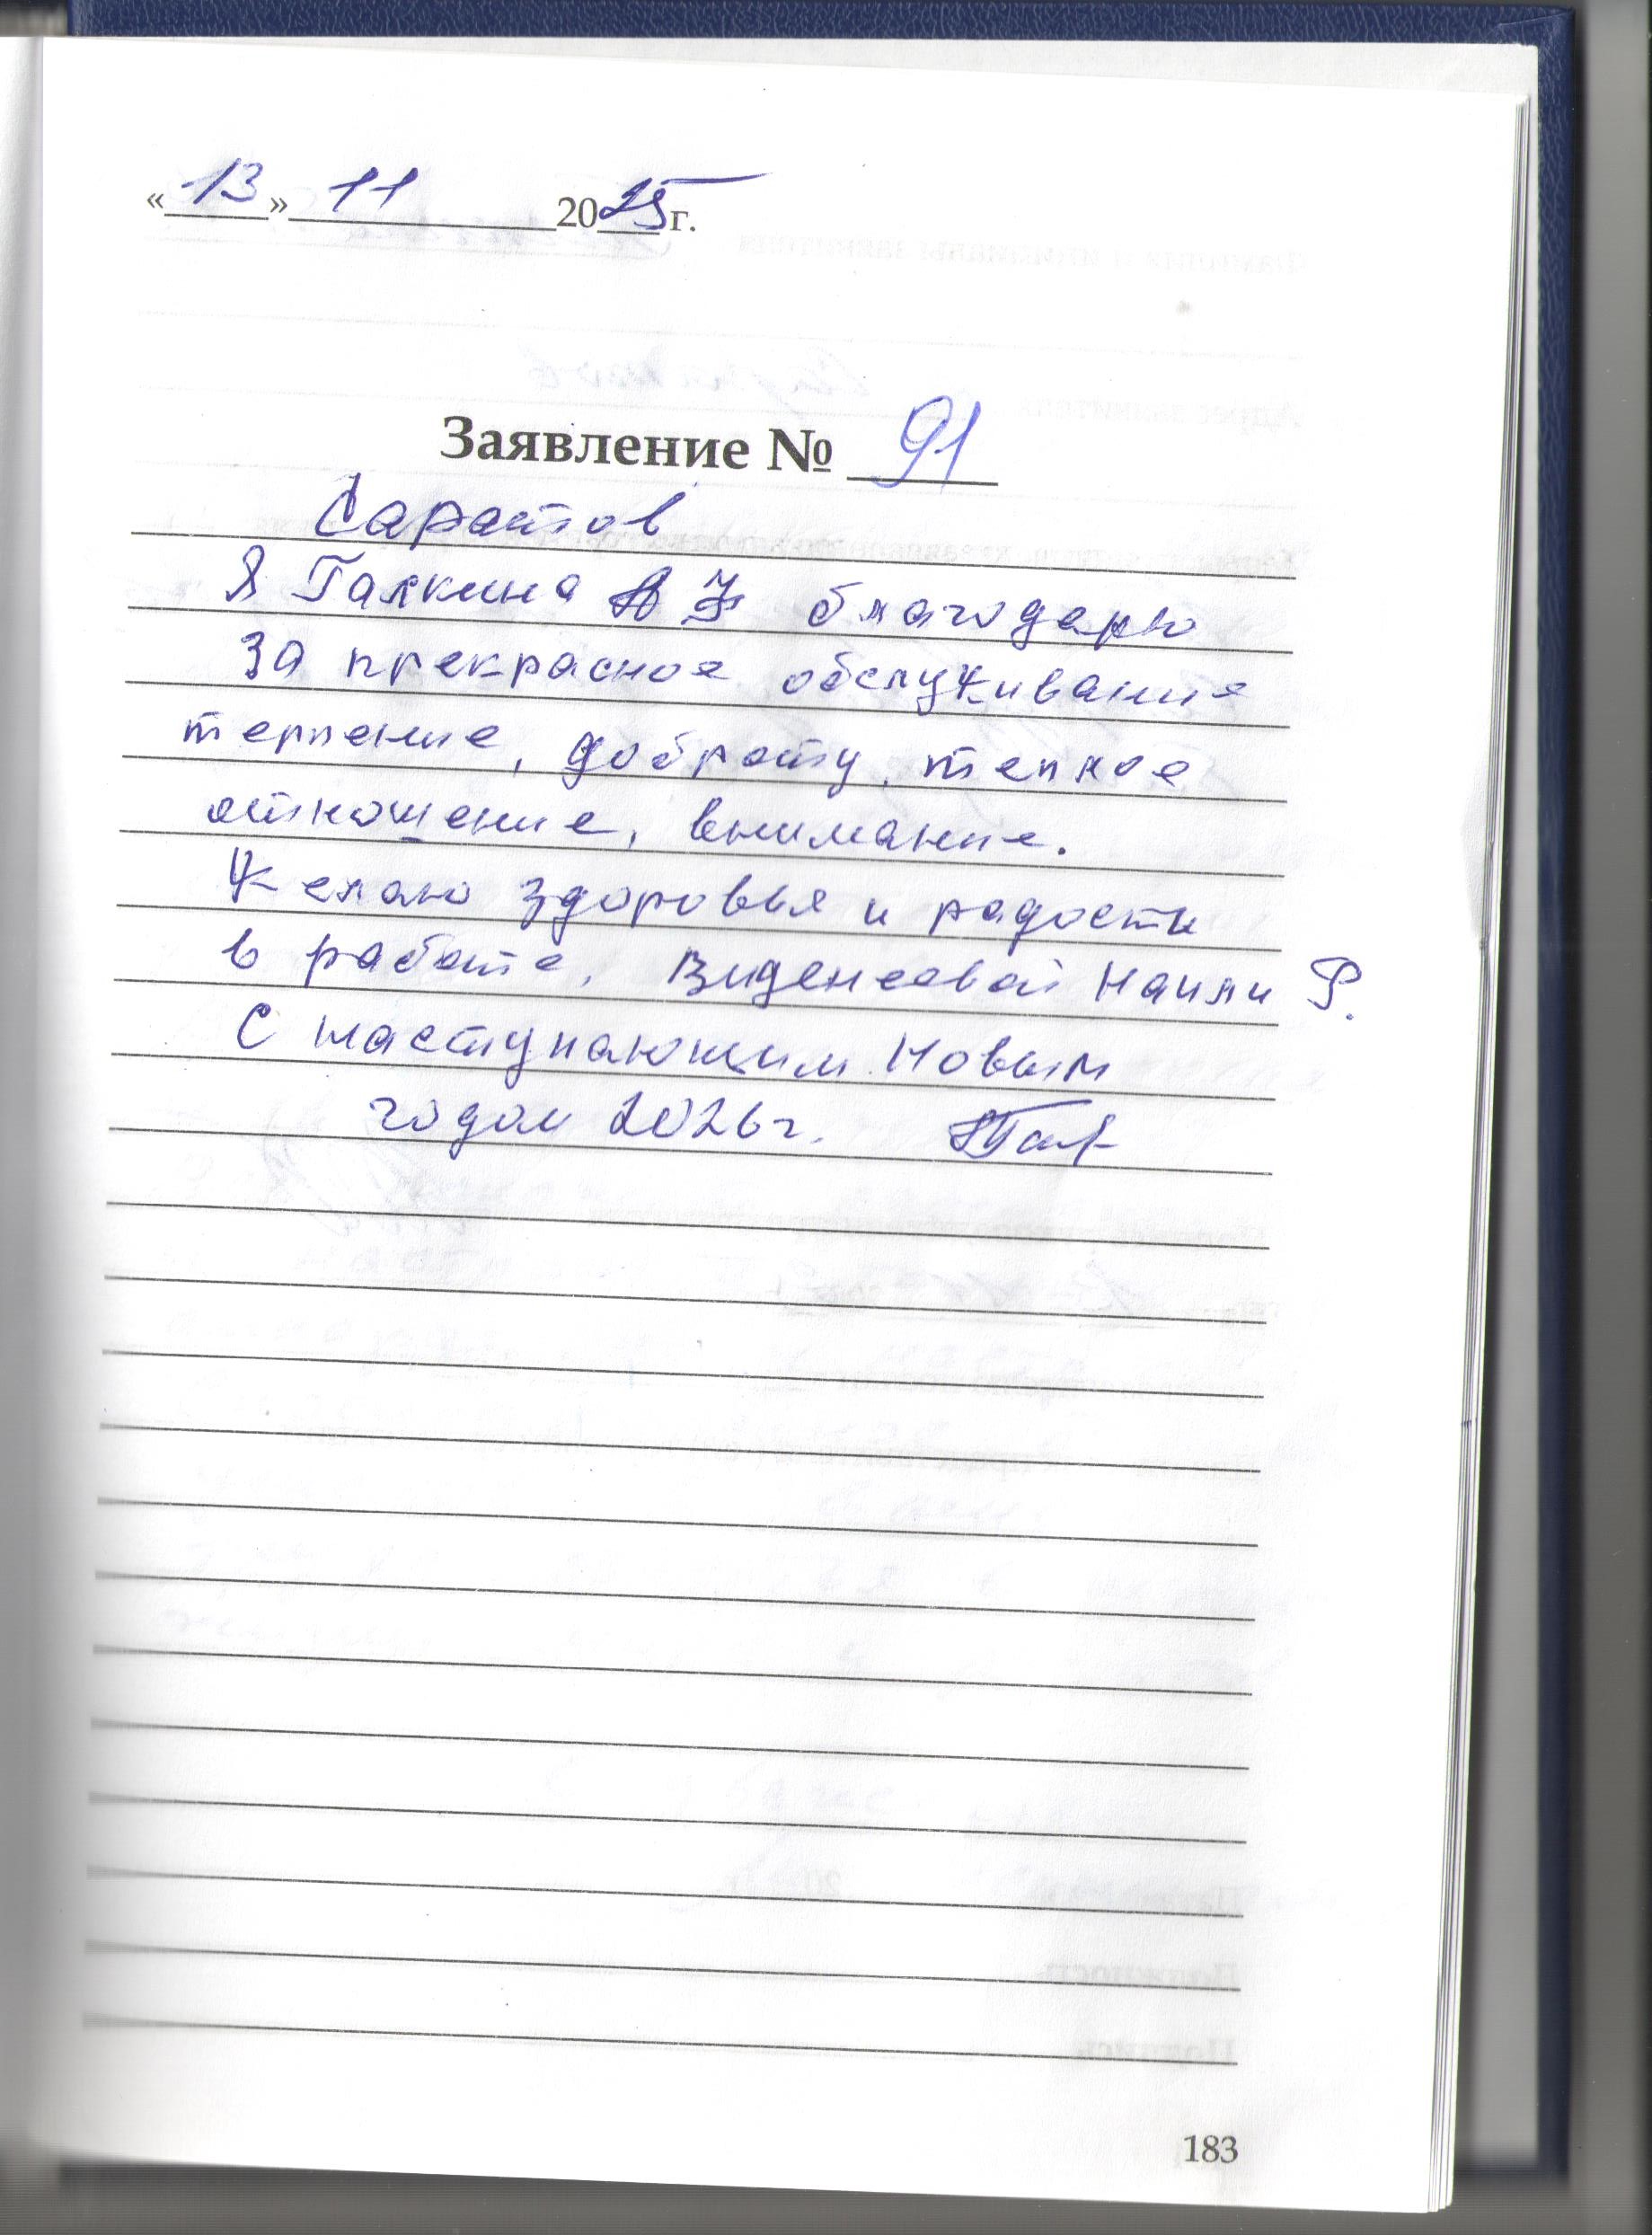 «13» 11 2025 г.
Заявление № 91
Саратов
Я Галкина благодарю
за прекрасное обслуживание
терпение, доброту, теплое
отношение, внимание.
Желаю здоровья и радости
в работе, Наили Р.
С наступающим Новым
годом 2026 г.
183